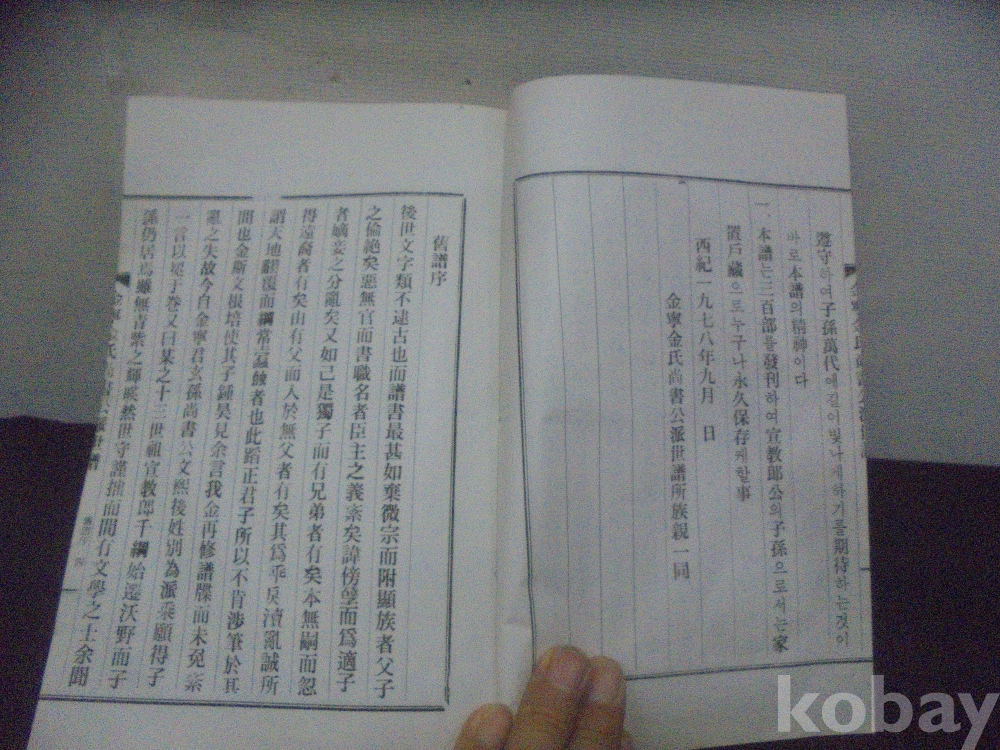 遵守하여 子孫萬代에 길이 빛나게 하기를 期待하는 것이
바로 本譜의 精神이다
一、本譜는 三百部를 發刊하여 宣敎郎公의 子孫으로서는 家
置戶藏으로 누구나 永久保存케 할 事
西紀一九七八年九月 日
金寧金氏尙書公派世譜所族親一同
舊譜序
後世文字類不逮古也而譜書最甚如棄微宗而附顯族者父子
之倫絶矣惡無官而書職名者臣主之義紊矣諱傍孼而爲適子
者嫡妾之分亂矣又如己是獨子而有兄弟者有矣本無嗣而忽
得遠裔者有矣由有父而入於無父者有矣其爲乖戾瀆亂誠所
謂天地飜覆而綱常蠹蝕者也此蹈正君子所以不肯涉筆於其
間也金斯文根培使其子鍾昊見余言我金再修譜牒而未免紊
亂之失故今自金寧君玄孫尙書公文熙後姓別為派乘願得子
一言以冠于卷又曰某之十三世祖宣敎郎千綱始遷沃野而子
孫仍居焉雖無靑紫之輝暎然世守謹拙而間有文學之士余聞
kobay